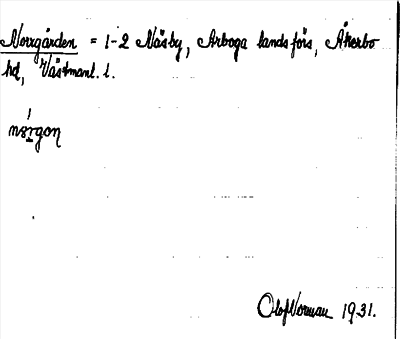 Norrgården = 1-2 Näsby, Arboga landsförs, Åkerbo
hd, Västmanl. l.
nǫ́rgon
Olof Norman 1931.